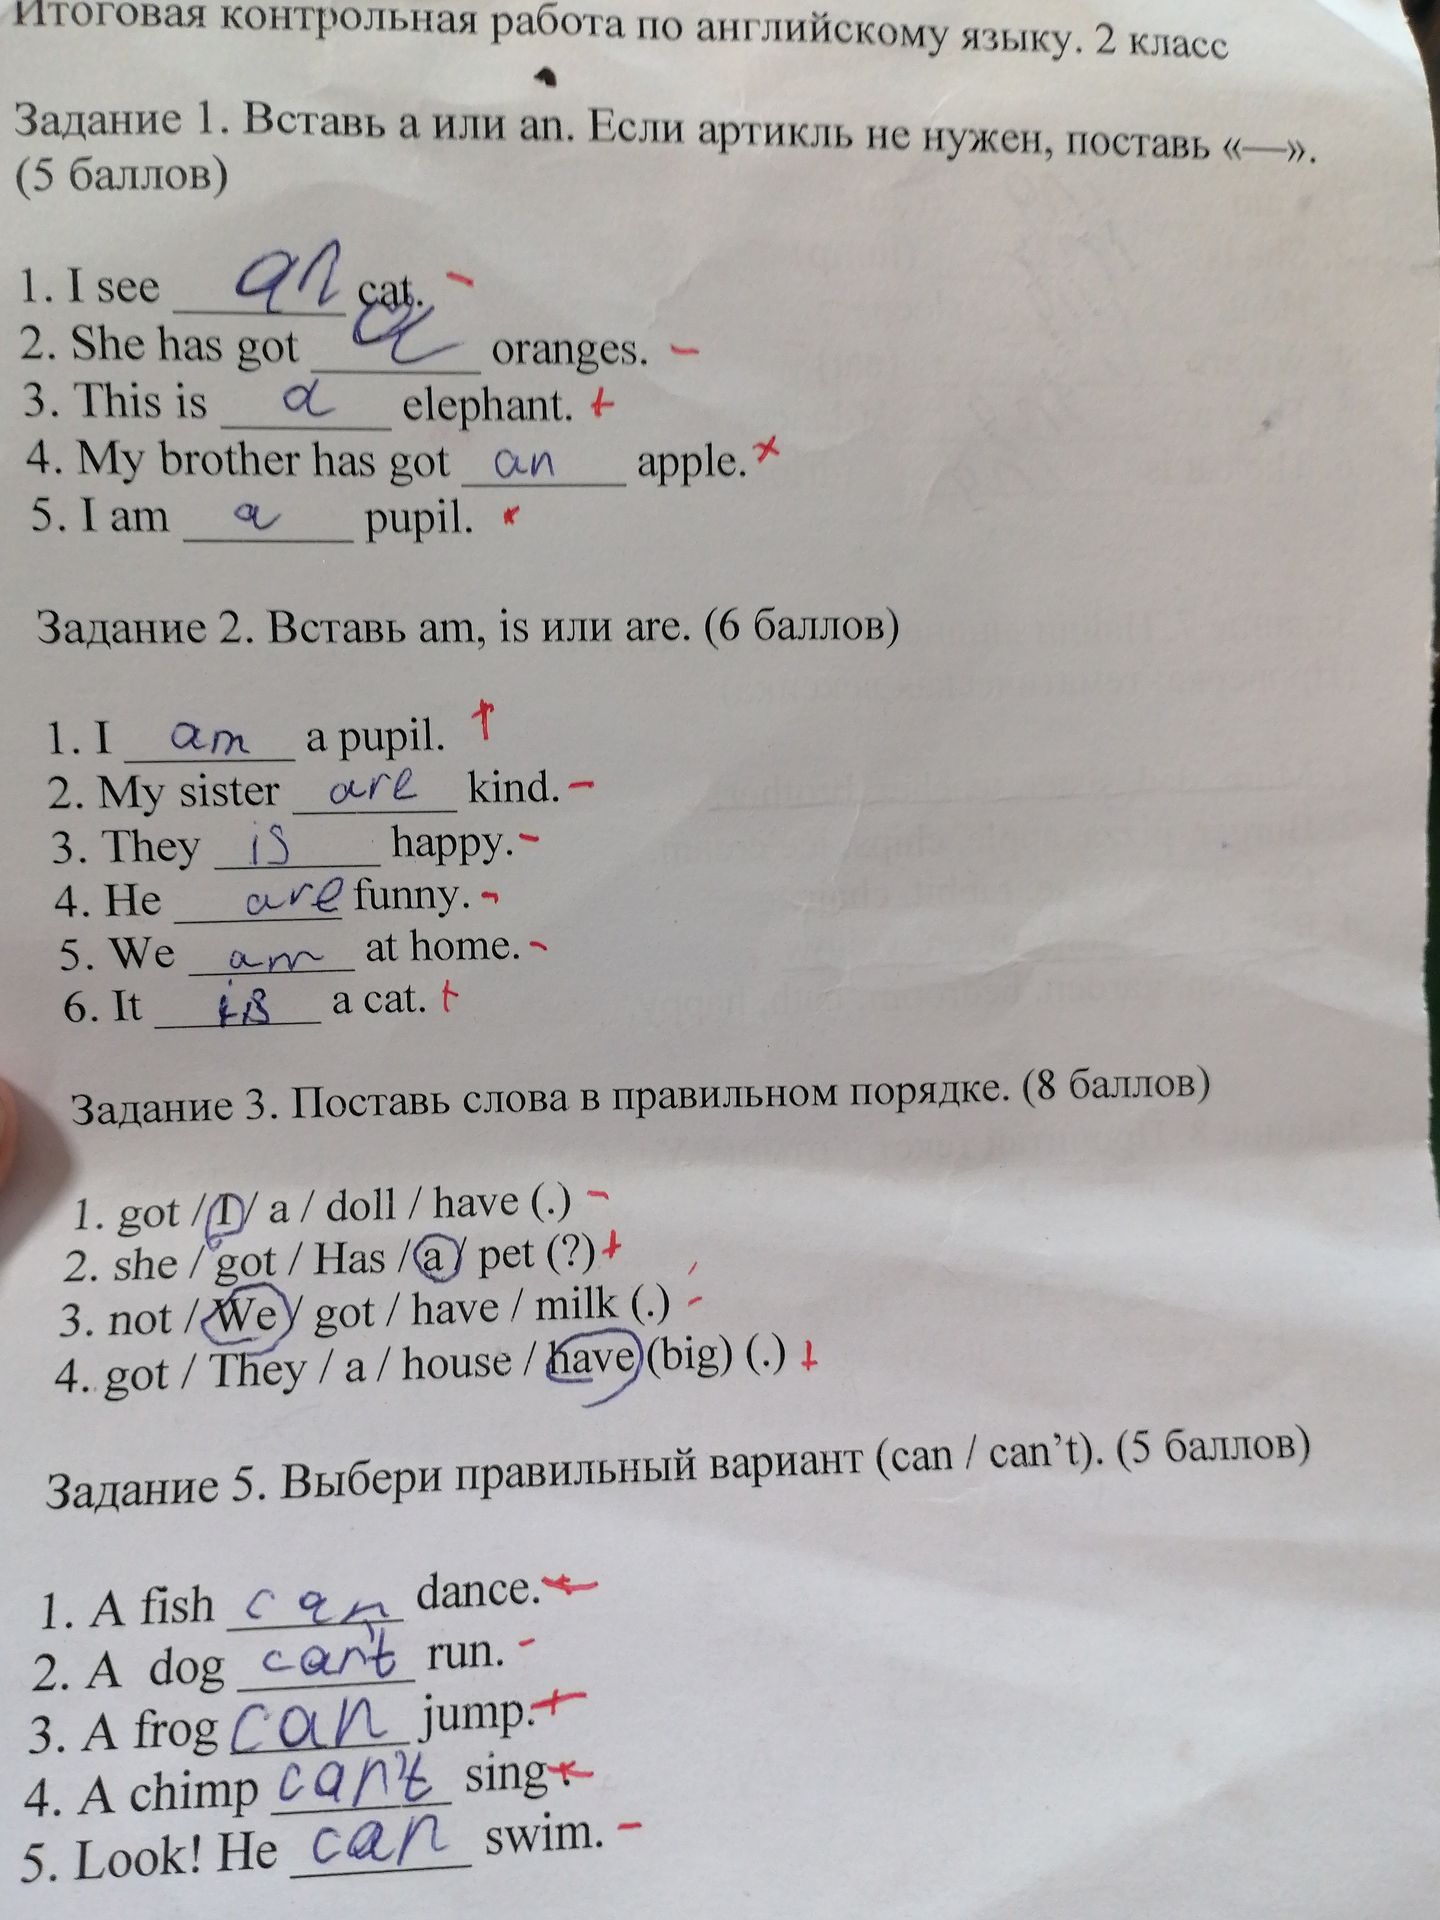 Итоговая контрольная работа по английскому языку. 2 класс
Задание 1. Вставь a или an. Если артикль не нужен, поставь «—».
(5 баллов)
1. I see an cat. -
2. She has got a oranges. -
3. This is a elephant. +
4. My brother has got an apple. +
5. I am a pupil. +
Задание 2. Вставь am, is или are. (6 баллов)
1. I am a pupil. +
2. My sister are kind. -
3. They is happy. -
4. He are funny. -
5. We am at home. -
6. It is a cat. +
Задание 3. Поставь слова в правильном порядке. (8 баллов)
1. got / I / a / doll / have (.) -
2. she / got / Has / a / pet (?) +
3. not / We / got / have / milk (.) -
4. got / They / a / house / have (big) (.) +
Задание 5. Выбери правильный вариант (can / can’t). (5 баллов)
1. A fish can dance. +
2. A dog can't run. -
3. A frog can jump. +
4. A chimp can't sing. +
5. Look! He can swim. -